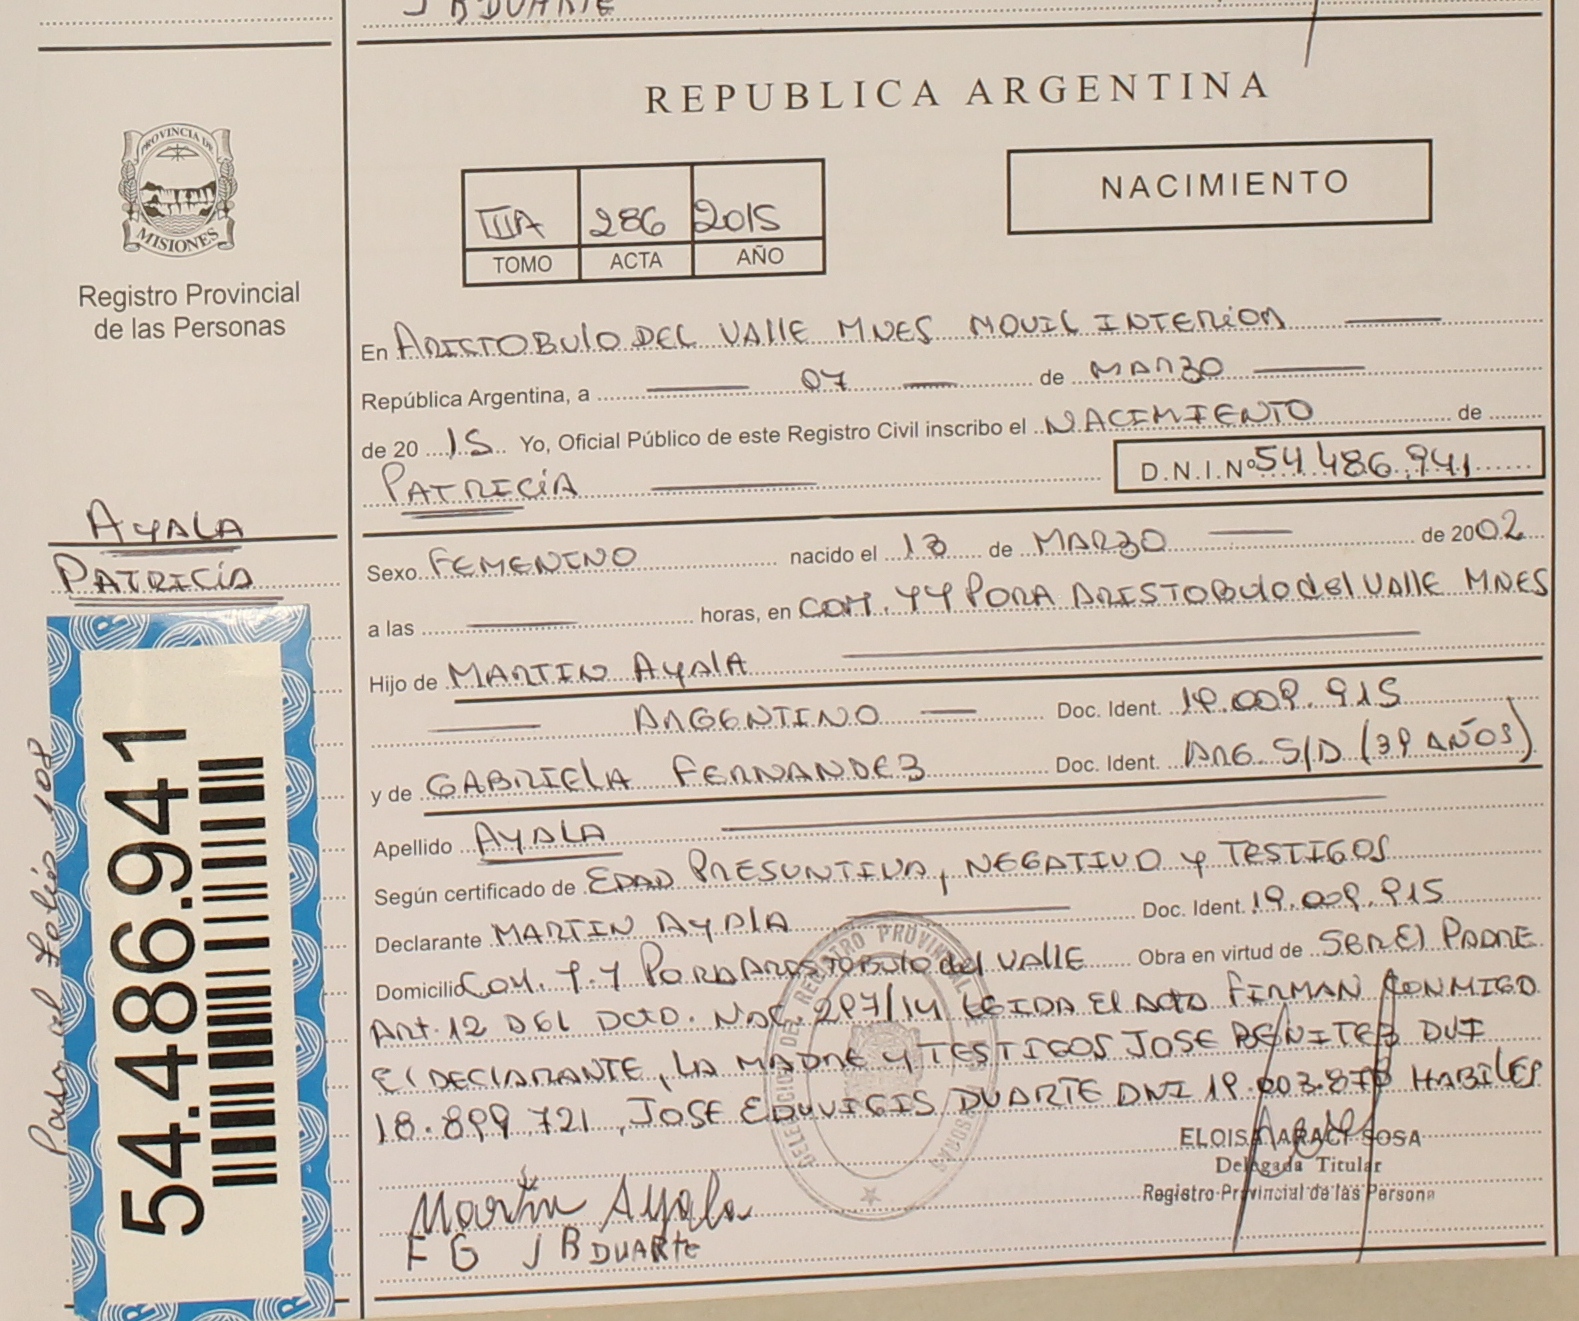 J B DUARTE
REPUBLICA ARGENTINA
PROVINCIA DE
MISIONES
Registro Provincial
de las Personas
NACIMIENTO
IIIA 286 2015
TOMO ACTA AÑO
En ARISTOBULO DEL VALLE MNES MOVIL INTERIOR
República Argentina, a 07 de MARZO
de 2015 Yo, Oficial Público de este Registro Civil inscribo el NACIMIENTO de
PATRICIA D.N.I.Nº 54.486.941
AYALA
PATRICIA
Sexo FEMENINO nacido el 13 de MARZO de 2002
a las horas, en COM. YY PORA ARISTOBULO del VALLE MNES
Hijo de MARTIN AYALA
ARGENTINO Doc. Ident. 19.009.915
y de GABRIELA FERNANDEZ Doc. Ident. ARG S/D (39 AÑOS)
Apellido AYALA
Según certificado de EDAD PRESUNTIVA, NEGATIVO Y TESTIGOS
Declarante MARTIN AYALA Doc. Ident. 19.009.915
Domicilio COM. Y.Y PORA ARISTOBULO del VALLE Obra en virtud de SER El PADRE
ART. 12 DEL DCTO. NAC. 297/14 LEIDA El ACTA FIRMAN CONMIGO
El DECLARANTE, LA MADRE Y TESTIGOS JOSE BENITEZ DNI
18.899.721, JOSE EDUVIGIS DUARTE DNI 19.003.878 HABILES
ELOISA ARACI SOSA
Delegada Titular
Registro Provincial de las Persona
Martín Ayala
F G J B DUARTE
54.486.941
Paso al Folio 108